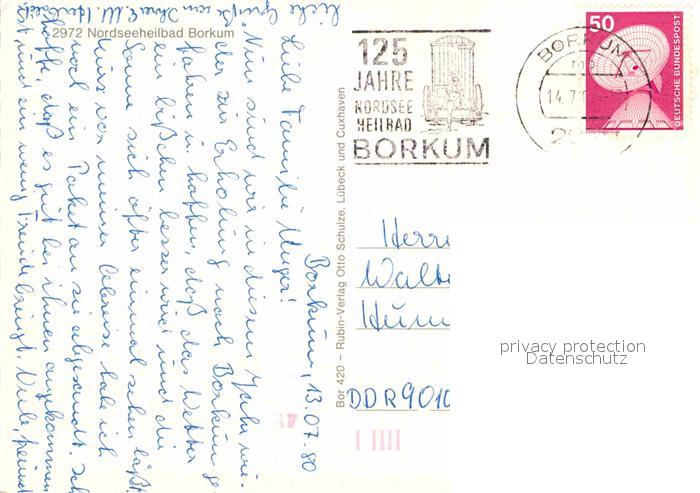 2972 Nordseeheilbad Borkum
Borkum, 13.07.80
Liebe Familie
Nun sind wir in diesem Jahr wie-
der zur Erholung nach Borkum ge-
fahren u. hoffen, daß das Wetter
ein bißchen besser wird und die
Sonne sich öfter einmal sehen läßt.
Kurz vor meiner Abreise habe ich
noch ein Paket an sie abgesandt. Ich
hoffe, daß es gut bei ihnen angekommen
ist und ein wenig Freude bringt. Viele,
liebe Grüße von
Bor 420 – Rubin-Verlag Otto Schulze, Lübeck und Cuxhaven
125
JAHRE
NORDSEE
HEILBAD
BORKUM
BORKUM
14.7
50
DEUTSCHE BUNDESPOST
Herr
Walt
DDR 9010
privacy protection
Datenschutz